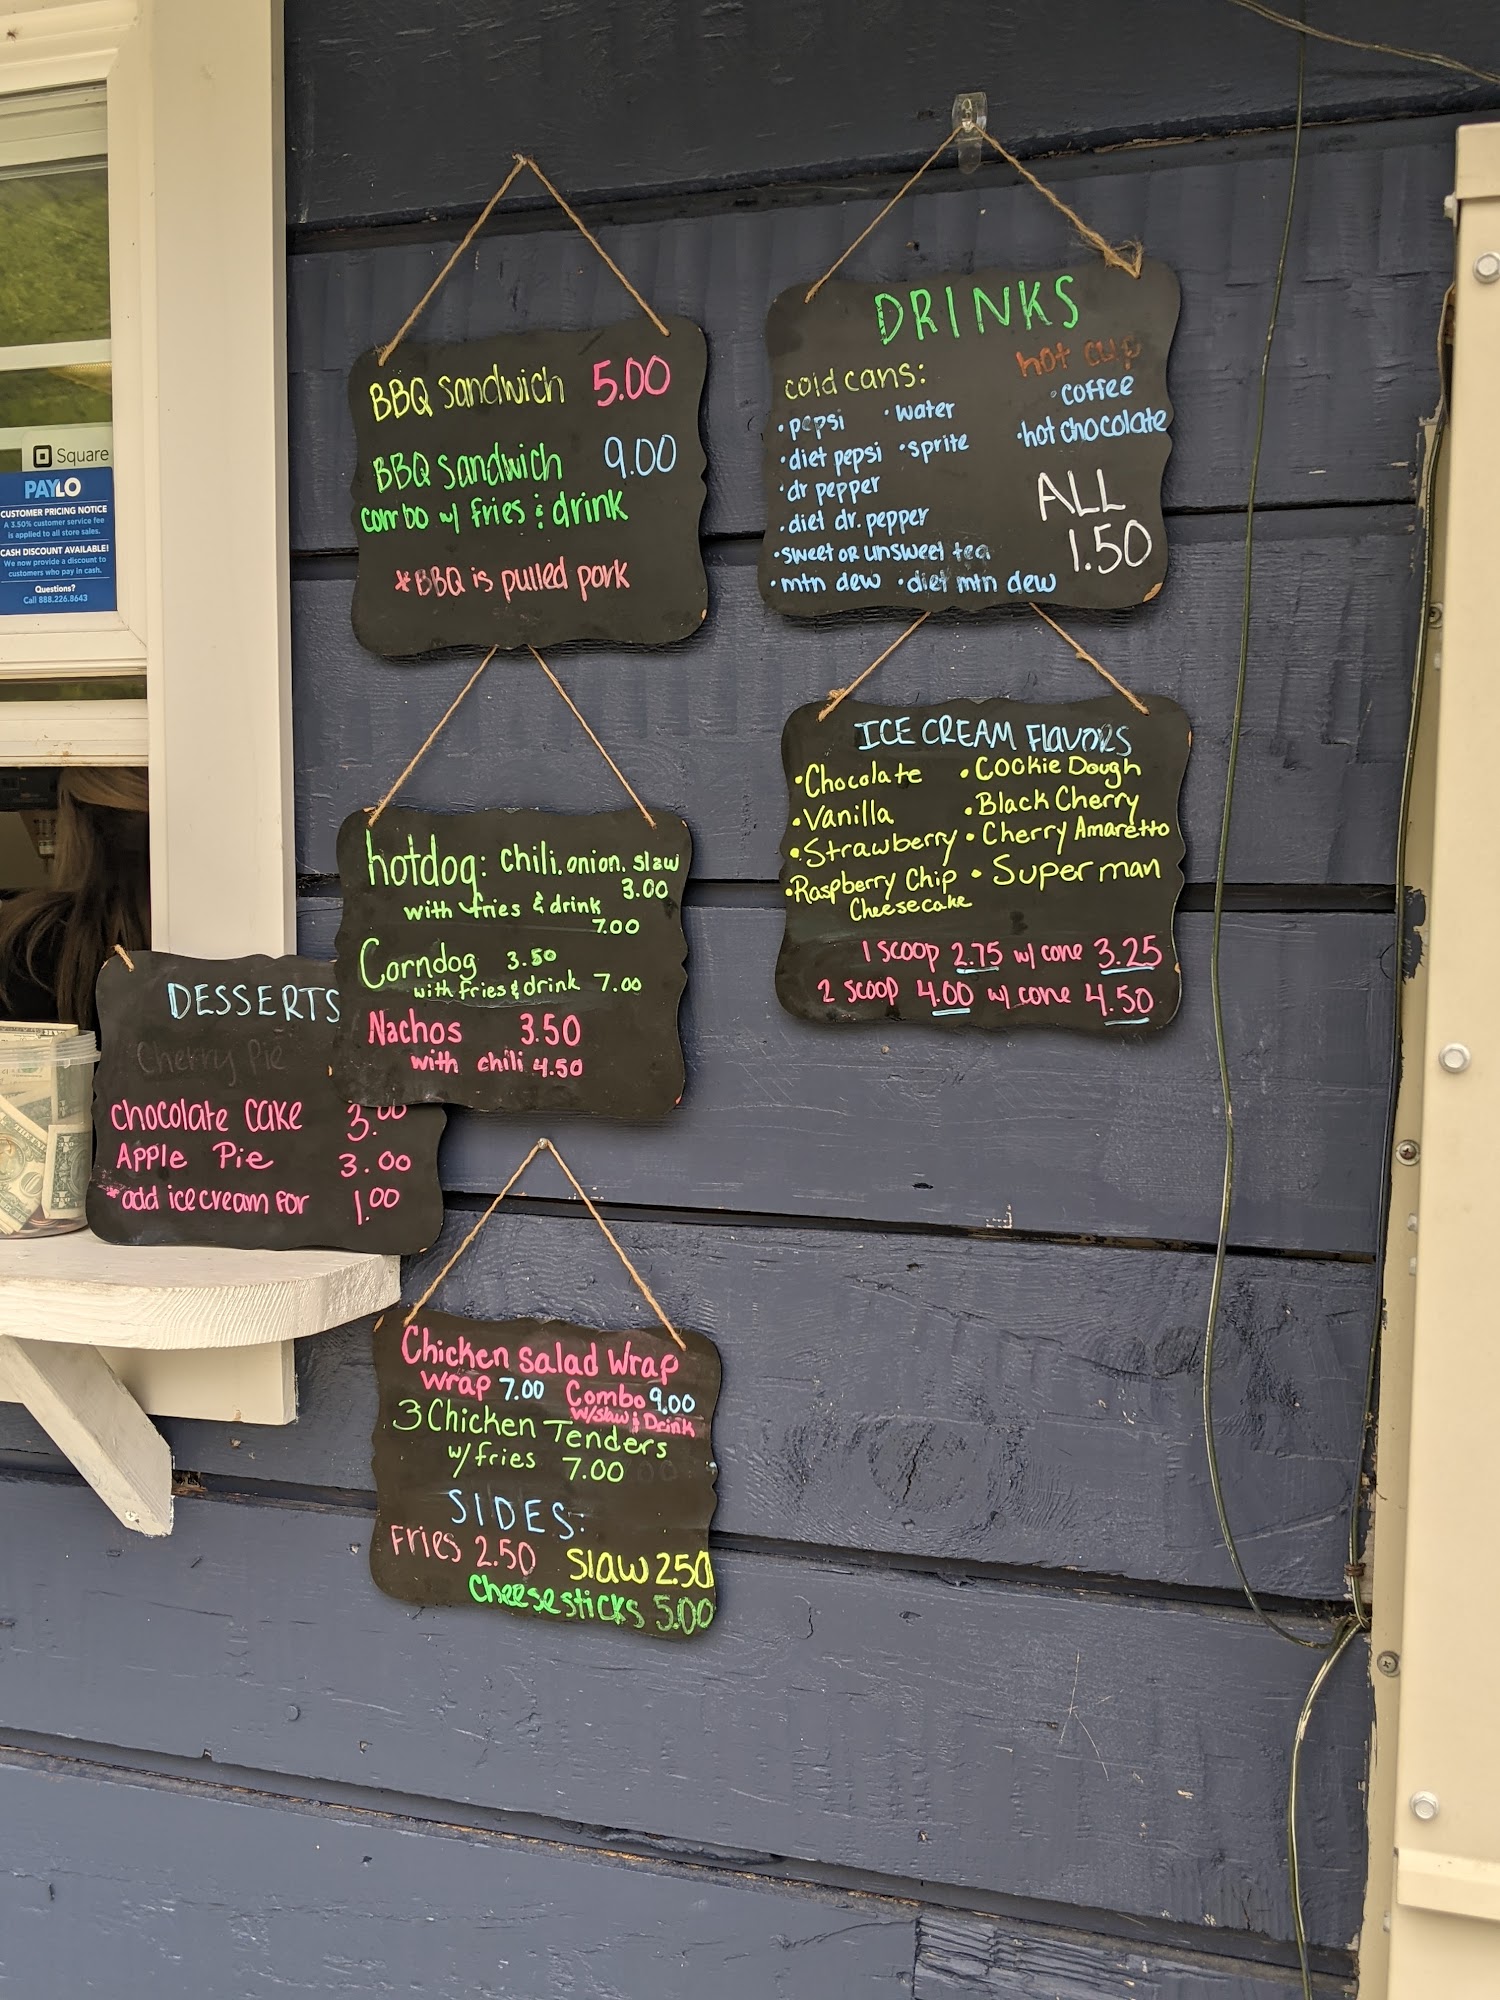 Square
PAYLO
CUSTOMER PRICING NOTICE
A 3.50% customer service fee
is applied to all store sales.
CASH DISCOUNT AVAILABLE!
We now provide a discount to
customers who pay in cash.
Questions?
Call 888.226.8643
BBQ sandwich 5.00
BBQ sandwich 9.00
combo w/ fries & drink
*BBQ is pulled pork
hotdog: chili, onion, slaw
3.00
with fries & drink
7.00
Corndog 3.50
with fries & drink 7.00
Nachos 3.50
with chili 4.50
DESSERTS
Cherry Pie
chocolate cake 3.00
Apple Pie 3.00
*add ice cream for 1.00
Chicken salad Wrap
wrap 7.00 Combo 9.00
w/slaw & Drink
3 Chicken Tenders
w/fries 7.00
SIDES:
Fries 2.50 Slaw 2.50
Cheesesticks 5.00
DRINKS
cold cans: hot cup
• pepsi • water • coffee
• diet pepsi • sprite • hot chocolate
• dr pepper
• diet dr. pepper
• sweet or unsweet tea
• mtn dew • diet mtn dew
ALL
1.50
ICE CREAM FLAVORS
• Chocolate • Cookie Dough
• Vanilla • Black Cherry
• Strawberry • Cherry Amaretto
• Raspberry Chip • Super man
Cheesecake
1 scoop 2.75 w/ cone 3.25
2 scoop 4.00 w/ cone 4.50